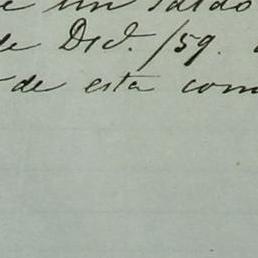 un saldo
de Dic̃. /59.
de esta com